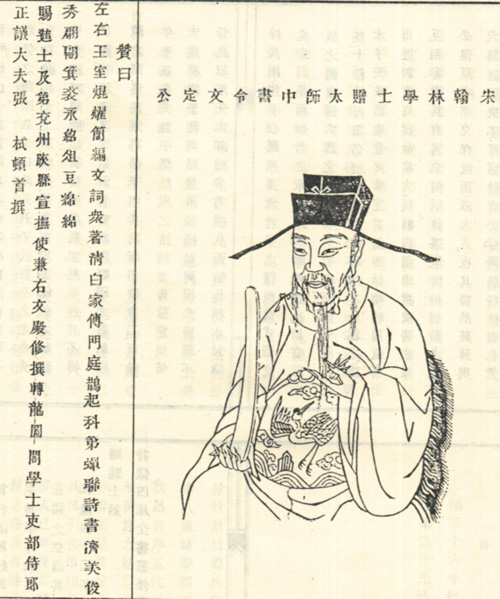 宋翰林學士贈太師中書令文定公
贊曰
左右王室焜燿簡編文詞衆著清白家傳門庭鵲起科弟蟬聯詩書濟美俊
秀翩翩箕裘永紹俎豆綿綿
賜進士及弟兗州陝縣宣撫使兼右文殿修撰轉龍圖閣學士吏部侍郎
正議大夫張 栻頓首撰